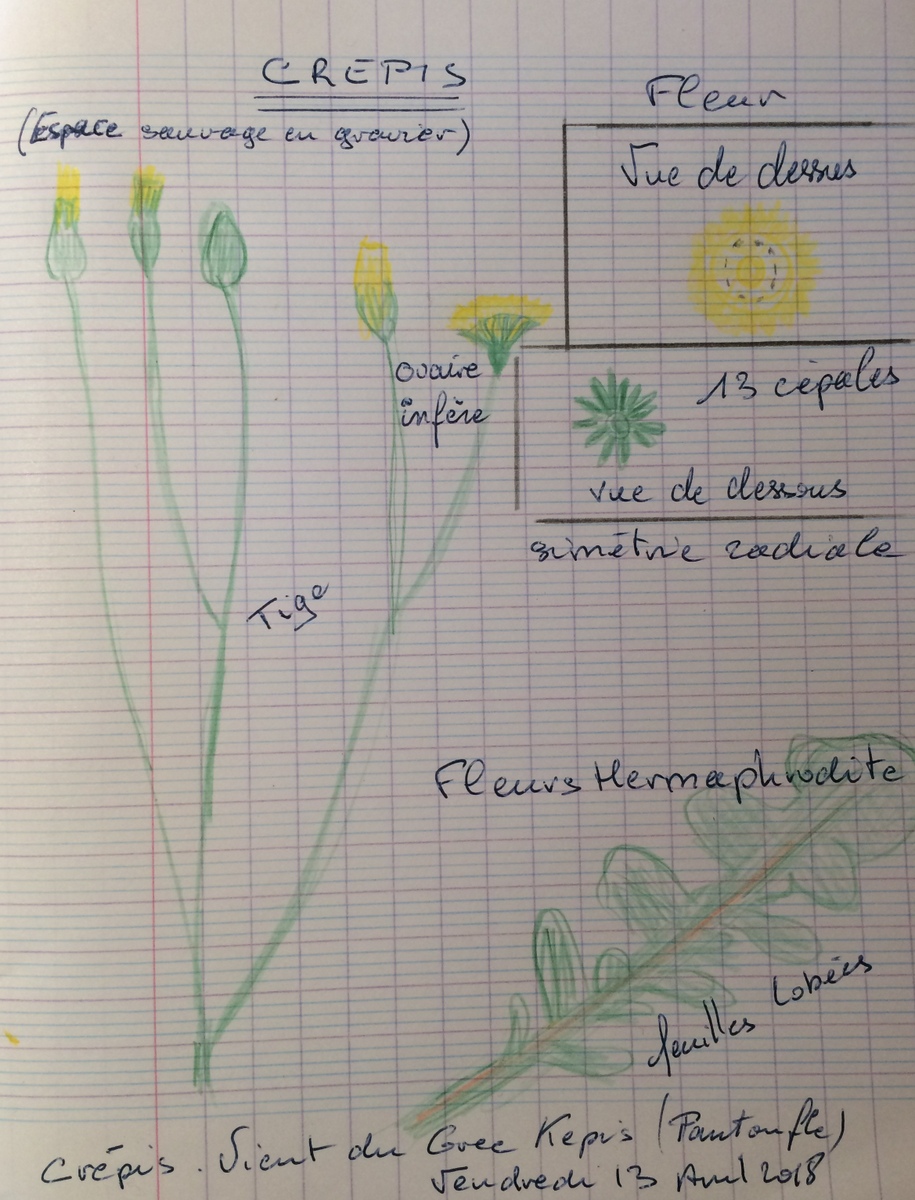 CREPIS
(Espace sauvage en gravier)
Fleur
Vue de dessus
ovaire
infère
13 cépales
vue de dessous
simétrie radiale
Tige
Fleurs Hermaphrodite
feuilles Lobées
Crépis. Vient du Grec Kepis (Pantoufle)
Vendredi 13 Avril 2018